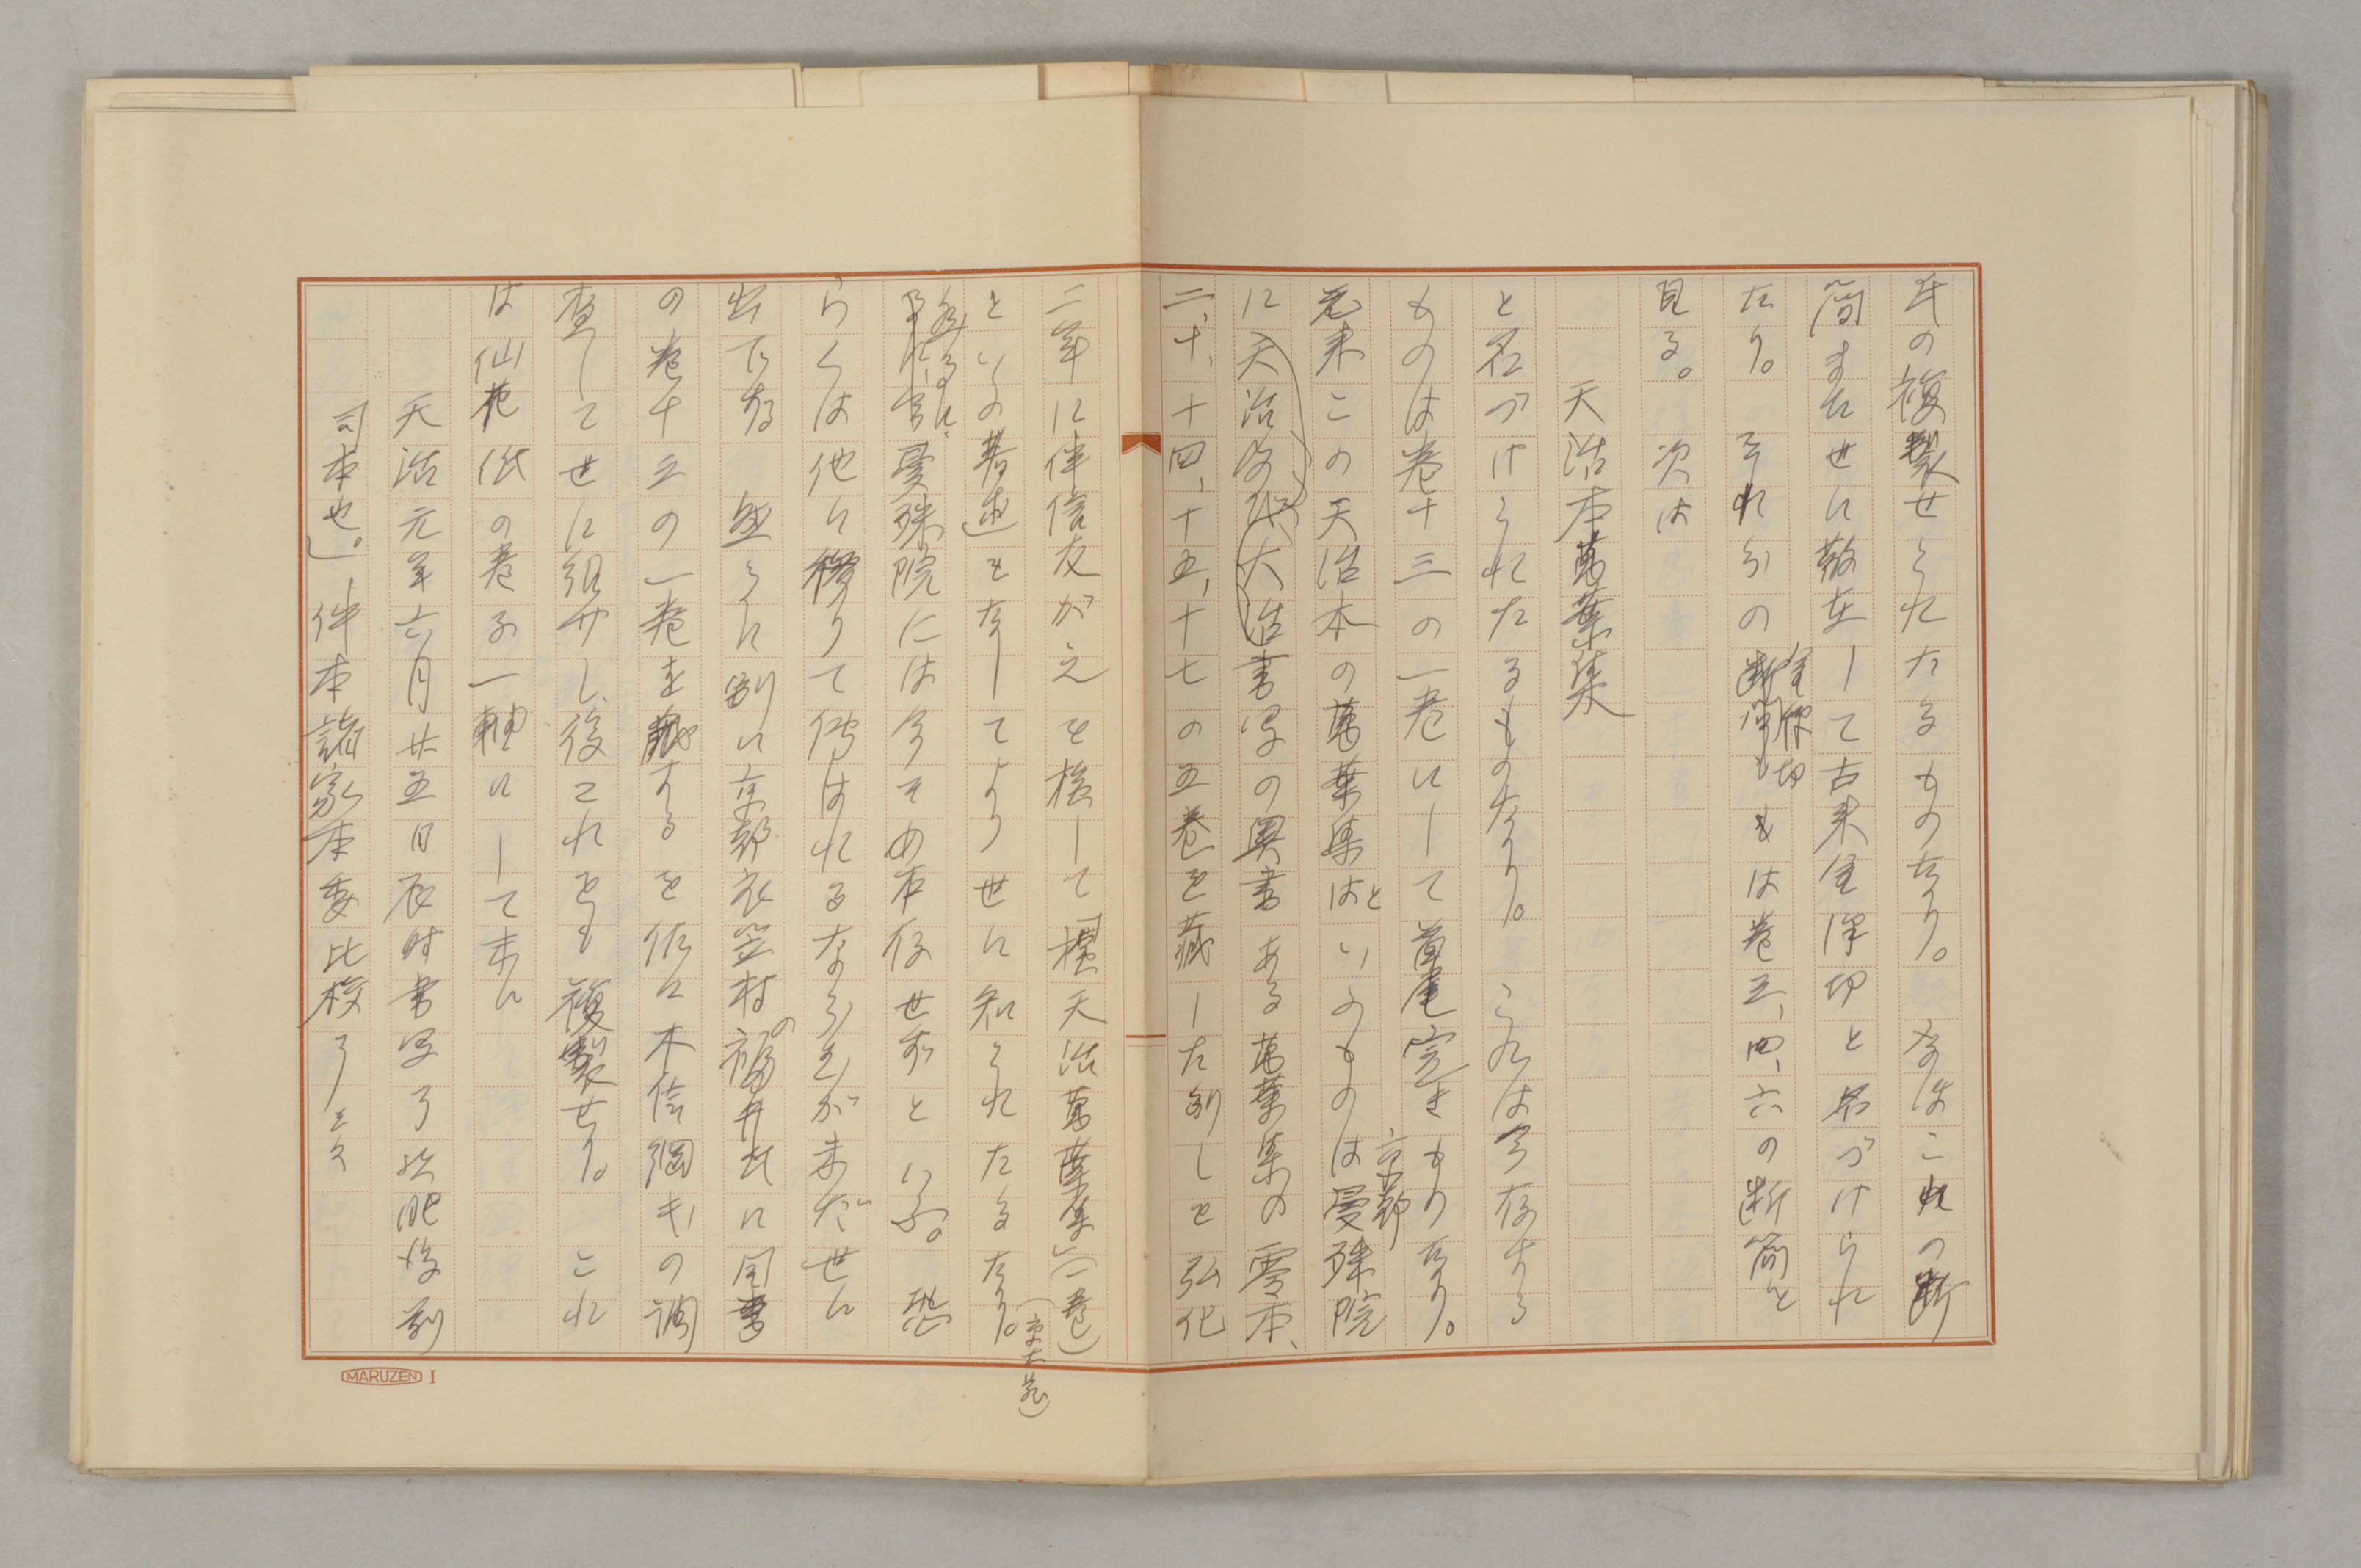 氏の複製せられたるものなり。なほこれの断
簡また世に散在して古来金澤切と名づけられ
たり。それらの金澤切もは巻三、四、六の断簡と
見る。次は
天治本萬葉集
と名づけられたるものなり。これは今存する
ものは巻十三の一巻にして首尾完きものなり。
元来この天治本の萬葉集といふものは京都曼殊院
に天治大治書写の奥書ある萬葉集の零本、
二、十、十四、十五、十七の五巻を蔵したりしを弘化
二年に伴信友がえを検して「檢天治萬葉集」(一巻)
といふ著述をなしてより世に知られたるなり。(京大蔵)
然るに、曼殊院には今その本存せずといふ。恐
らくは他に移りて傳はれるならむが未だ世に
出でず 然るに別に京都衣笠村の福井氏に同書
の巻十三の一巻を蔵するを佐々木信綱氏の調
査して世に紹介し、後これをも複製せり。これ
は仙花紙の巻子一軸にして末に
天治元年六月廿五日辰時書写了於肥後
司本也。」件本諸家本委比校了云々
MARUZEN I